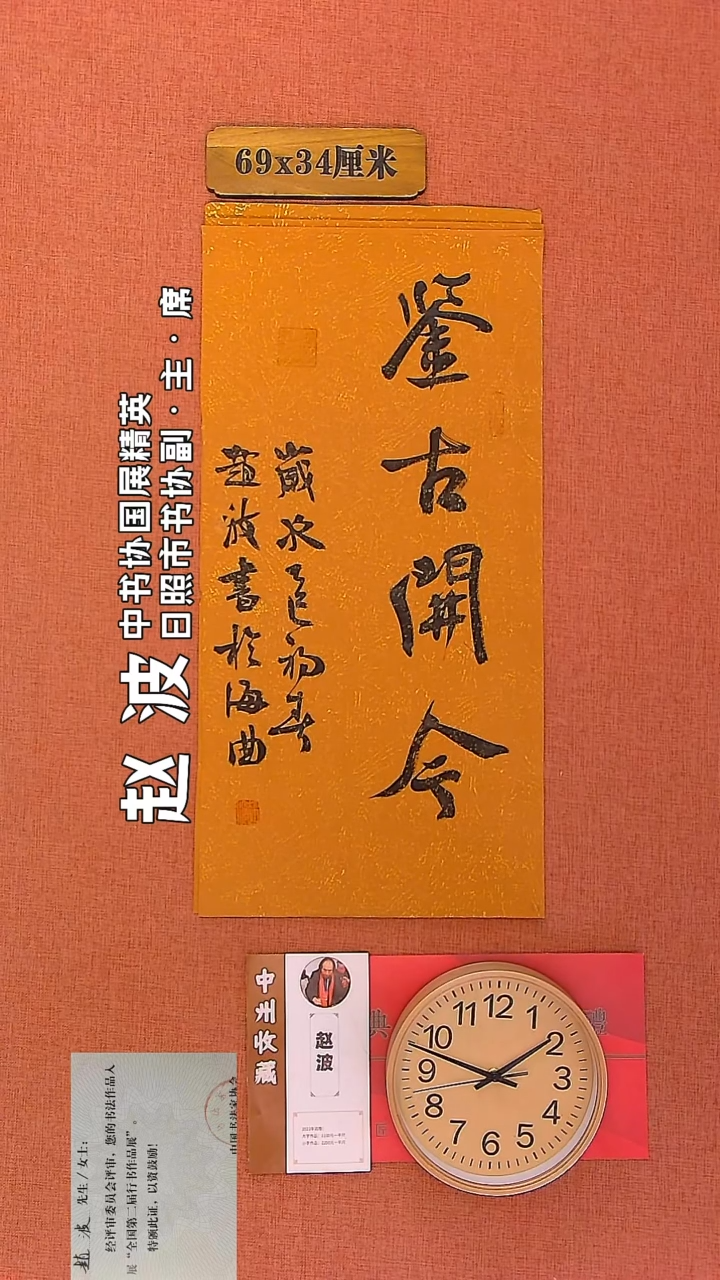 69x34厘米
鉴古開今
歲次乙巳初春
趙波書於海曲
赵波
中书协国展精英
日照市书协副·主·席
赵波
12
1
2
3
4
5
6
7
8
9
10
11
趙波 先生/女士:
经评审委员会评审，您的书法作品入
展“全国第二届行书作品展”。
特颁此证，以资鼓励!